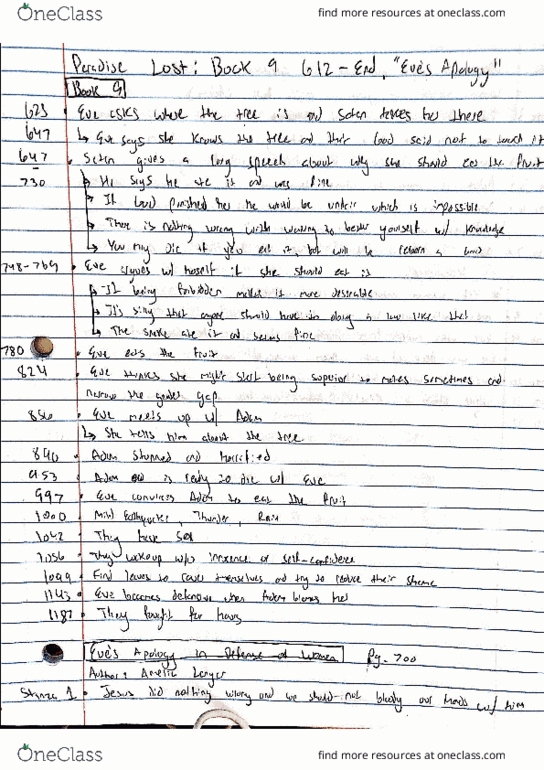 OneClass
find more resources at oneclass.com
Paradise Lost: Book 9 612-End, "Eve's Apology"
Book 9
623 • Eve asks where the tree is and Satan takes her there
647 ↳ Eve says she knows the tree and that God said not to touch it
647 - 730 • Satan gives a long speech about why she should eat the fruit
↳ He says he ate it and was fine
↳ If God punished her he would be unfair which is impossible
↳ There is nothing wrong with wanting to better yourself w/ knowledge
↳ You may die if you eat it, but will be reborn a
748-769 • Eve argues w/ herself if she should eat it
↳ It being forbidden makes it more desirable
↳ It's silly that anyone should have to obey a law like that
↳ The snake ate it and seems fine
780 • Eve eats the fruit
824 • Eve thinks she might start being superior to males sometimes and
narrow the gender gap
856 • Eve meets up w/ Adam
↳ She tells him about the tree
890 • Adam stunned and horrified
953 • Adam is ready to die w/ Eve
997 • Eve convinces Adam to eat the fruit
1000 Mild Earthquakes, Thunder, Rain
1042 • They have sex
1056 • They wakeup w/o innocence or self-confidence
1099 • Find leaves to cover themselves and try to reduce their shame
1143 • Eve becomes defensive when Adam blames her
1187 • They fought for hours
Eve's Apology in Defense of Women Pg. 700
Author: Amelia Lanyer
Stanza 1 • Jesus did nothing wrong and we should not bloody our hands w/ him
OneClass
find more resources at oneclass.com